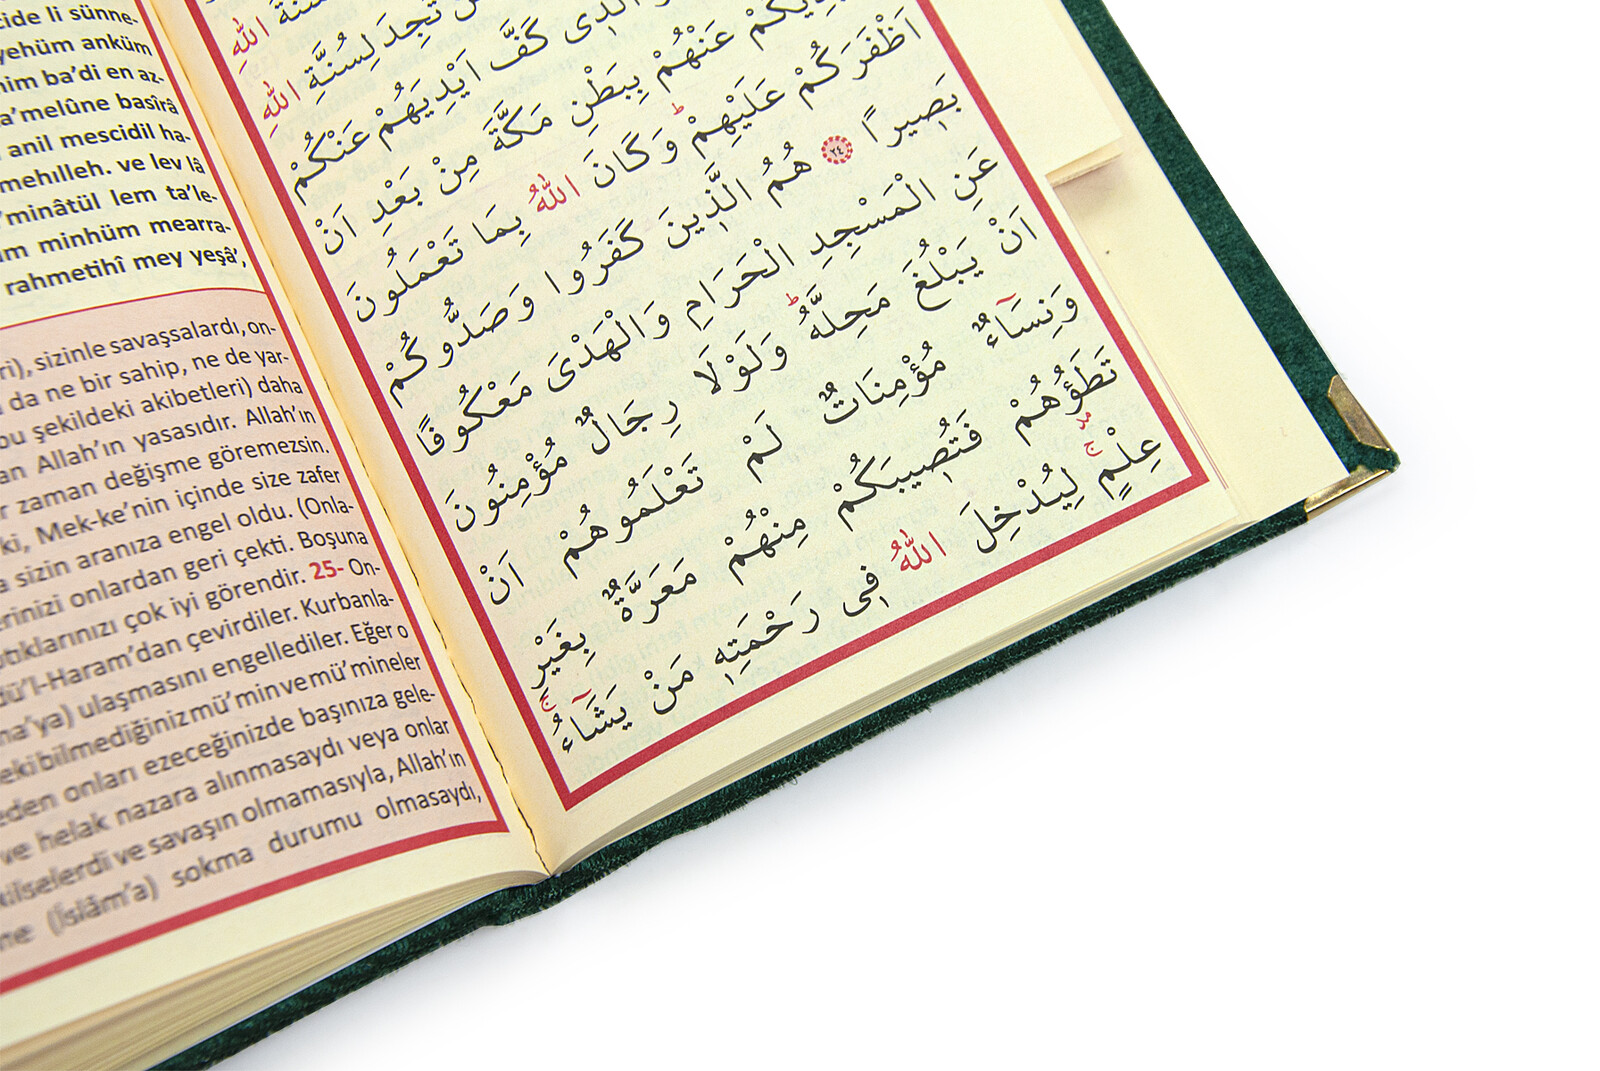 cide li sünne-
yehüm anküm
him ba’di en az-
a’melûne basîrâ
anil mescidil ha-
mehılleh. ve lev lâ
’minâtül lem ta’le-
üm minhüm mearra-
rahmetihî mey yeşâ’,
ri), sizinle savaşsalardı, on-
da ne bir sahip, ne de yar-
bu şekildeki akibetleri) daha
an Allah’ın yasasıdır. Allah’ın
r zaman değişme göremezsin.
ki, Mek-ke’nin içinde size zafer
a sizin aranıza engel oldu. (Onla-
erinizi onlardan geri çekti. Boşuna
ptıklarınızı çok iyi görendir. 25- On-
dü’l-Haram’dan çevirdiler. Kurbanla-
na’ya) ulaşmasını engellediler. Eğer o
eki bilmediğiniz mü’min ve mü’mineler
eden onları ezeceğinizde başınıza gele-
ve helak nazara alınmasaydı veya onlar
kilselerdi ve savaşın olmamasıyla, Allah’ın
ne (İslâm’a) sokma durumu olmasaydı,
سُنَّةَ اللّٰهِ
تَجِدَ لِسُنَّةِ اللّٰهِ
الَّذٖى كَفَّ اَيْدِيَهُمْ عَنْكُمْ
عَنْهُمْ بِبَطْنِ مَكَّةَ مِنْ بَعْدِ اَنْ
اَظْفَرَكُمْ عَلَيْهِمْ ط وَكَانَ اللّٰهُ بِمَا تَعْمَلُونَ
بَصٖيرًا ﴿٢٤﴾ هُمُ الَّذٖينَ كَفَرُوا وَصَدُّوكُمْ
عَنِ الْمَسْجِدِ الْحَرَامِ وَالْهَدْىَ مَعْكُوفًا
اَنْ يَبْلُغَ مَحِلَّهُ ط وَلَوْلَا رِجَالٌ مُؤْمِنُونَ
وَنِسَٓاءٌ مُؤْمِنَاتٌ لَمْ تَعْلَمُوهُمْ اَنْ
تَطَؤُ۫هُمْ فَتُصٖيبَكُمْ مِنْهُمْ مَعَرَّةٌ بِغَيْرِ
عِلْمٍ ج لِيُدْخِلَ اللّٰهُ فٖى رَحْمَتِهٖ مَنْ يَشَٓاءُ ج